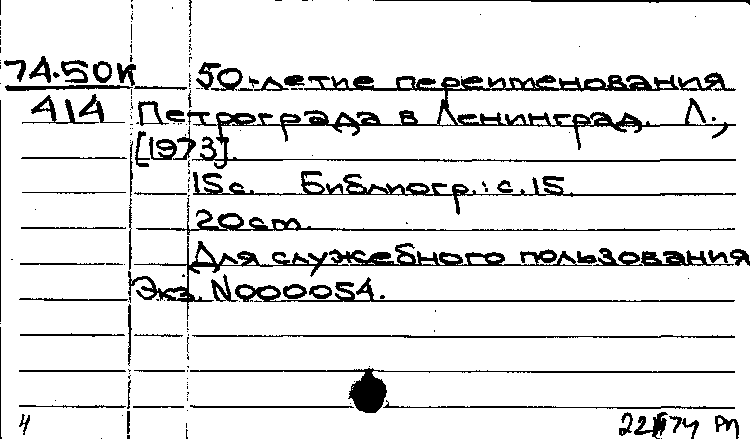 74.50К 50-летие переименования
414 Петрограда в Ленинград. Л.,
[1973].
15с. Библиогр.: с.15.
20cm.
Для служебного пользования
Экз. N000054.
4